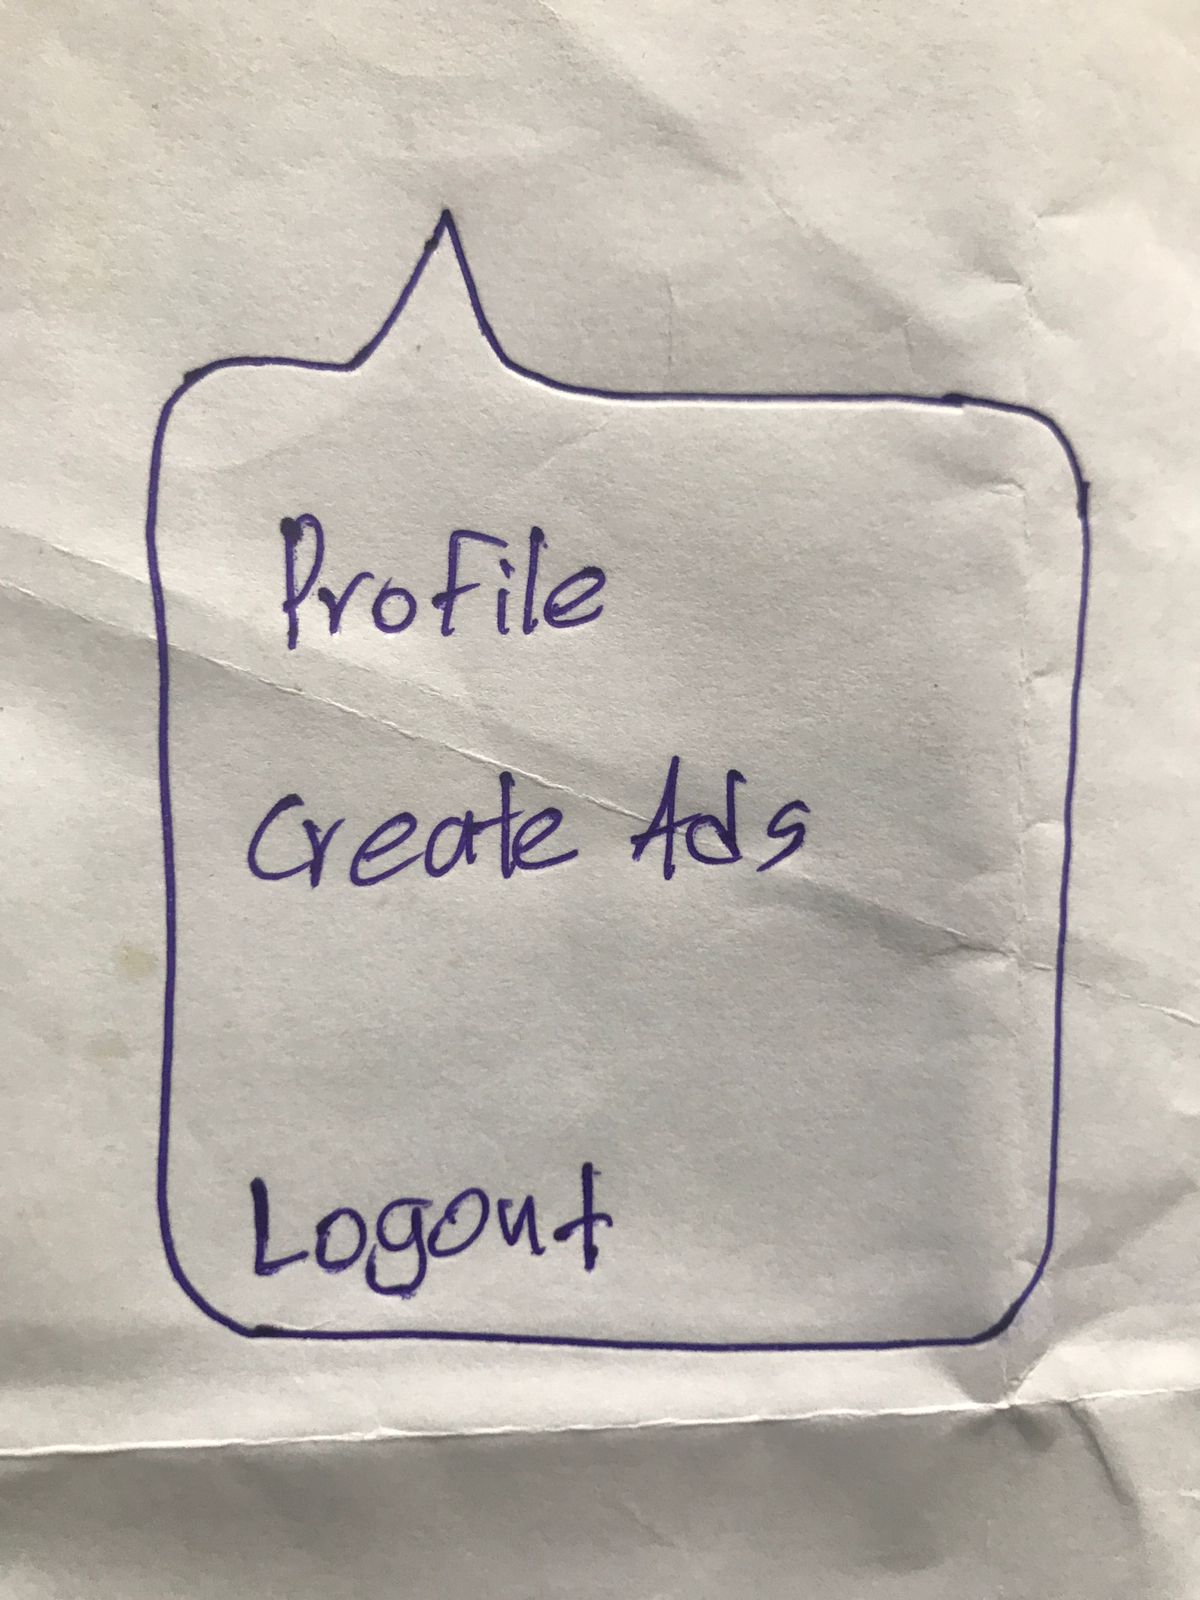 Profile
Create Ads
Logout